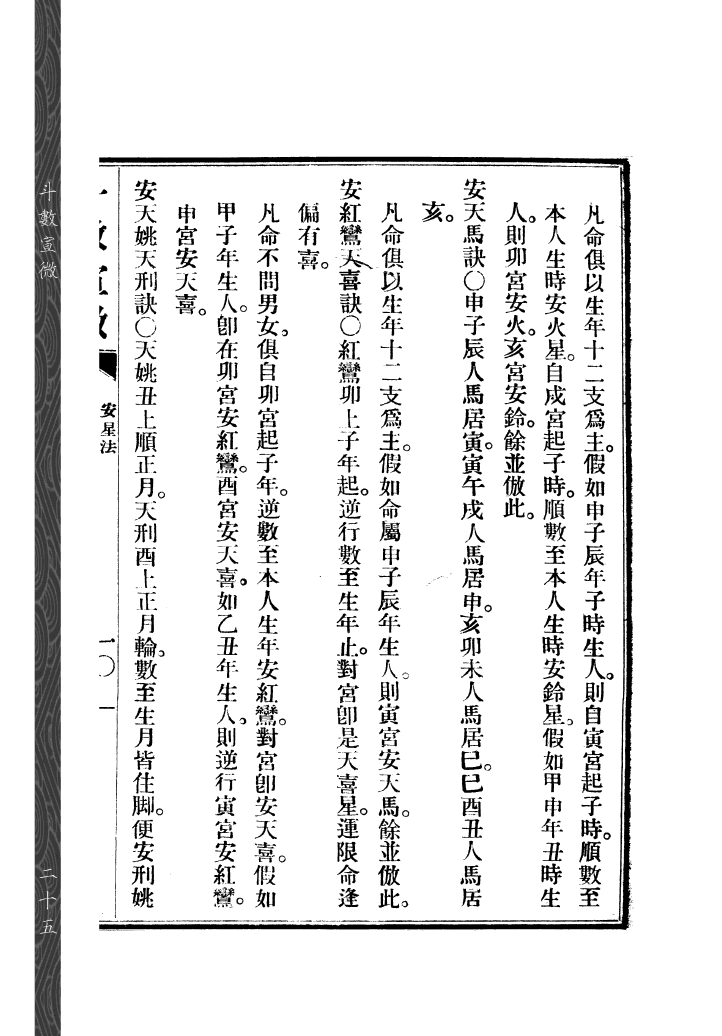 凡命俱以生年十二支爲主。假如申子辰年子時生人。則自寅宮起子時。順數至
本人生時安火星。自戍宮起子時。順數至本人生時安鈴星。假如甲申年丑時生
人。則卯宮安火。亥宮安鈴。餘並倣此。
安天馬訣〇申子辰人馬居寅。寅午戌人馬居申。亥卯未人馬居巳。巳酉丑人馬居
亥。
凡命俱以生年十二支爲主。假如命屬申子辰年生人。則寅宮安天馬。餘並倣此。
安紅鸞天喜訣〇紅鸞卯上子年起。逆行數至生年止。對宮卽是天喜星。運限命逢
偏有喜。
凡命不問男女。俱自卯宮起子年。逆數至本人生年安紅鸞。對宮卽安天喜。假如
甲子年生人。卽在卯宮安紅鸞。酉宮安天喜。如乙丑年生人。則逆行寅宮安紅鸞。
申宮安天喜。
安天姚天刑訣〇天姚丑上順正月。天刑酉上正月輪。數至生月皆住脚。便安刑姚
安星法
一〇一
斗數宣微
二十五